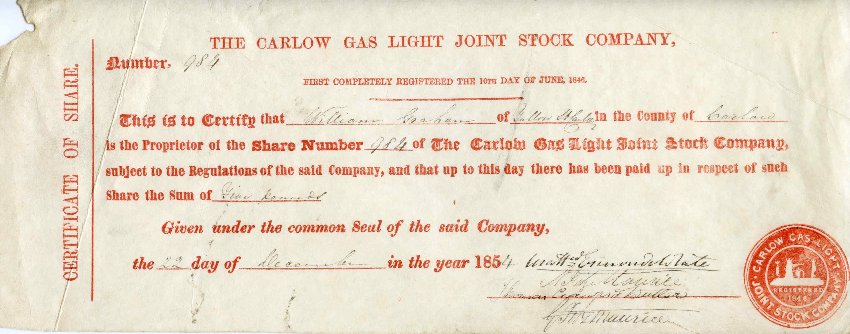 THE CARLOW GAS LIGHT JOINT STOCK COMPANY,
Number, 984
FIRST COMPLETELY REGISTERED THE 10TH DAY OF JUNE, 1846.
CERTIFICATE OF SHARE.
This is to Certify that William Graham of Tullow St Carlow in the County of Carlow
is the Proprietor of the Share Number 984 of The Carlow Gas Light Joint Stock Company,
subject to the Regulations of the said Company, and that up to this day there has been paid up in respect of such
Share the Sum of Five pounds
Given under the common Seal of the said Company,
the 22 day of December in the year 1854
Thomas
CARLOW GAS LIGHT JOINT STOCK COMPANY
REGISTERED
1846